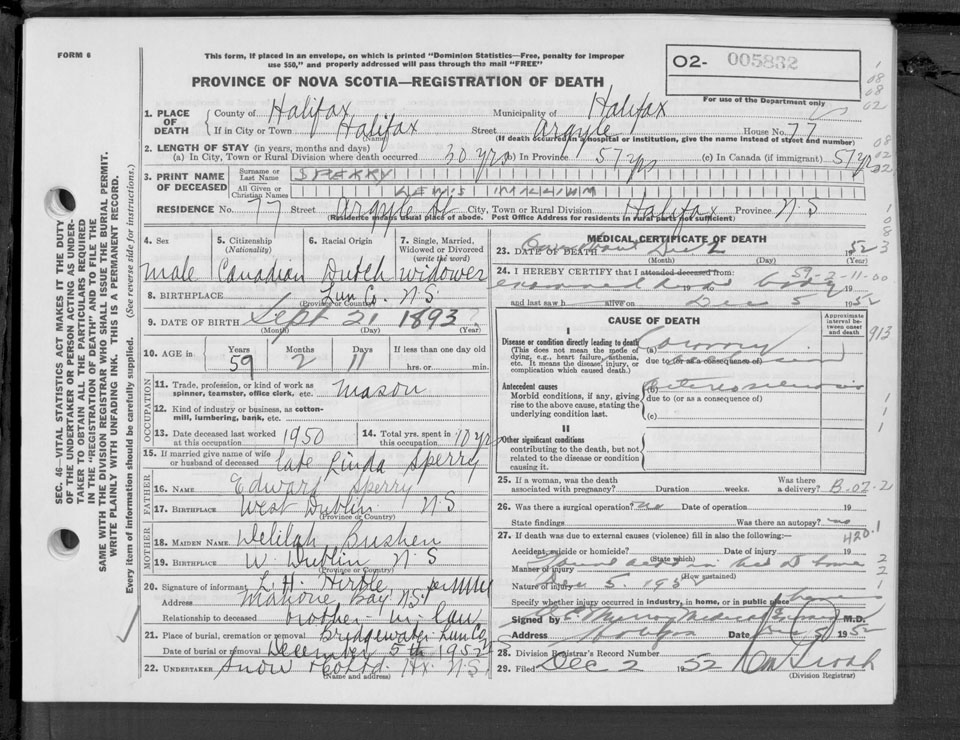 FORM 6
This form, if placed in an envelope, on which is printed "Dominion Statistics—Free, penalty for improper
use $50," and properly addressed will pass through the mail "FREE"
PROVINCE OF NOVA SCOTIA—REGISTRATION OF DEATH
O2- 005832
For use of the Department only
1. PLACE OF DEATH County of Halifax Municipality of Halifax
If in City or Town Halifax Street Argyle House No. 77
(Name) (If death occurred in a hospital or institution, give the name instead of street and number)
2. LENGTH OF STAY (in years, months and days)
(a) In City, Town or Rural Division where death occurred 30 yrs (b) In Province 57 yrs (c) In Canada (if immigrant) 57 yrs
3. PRINT NAME OF DECEASED Surname or Last Name SPERRY
All Given or Christian Names LEWIS
RESIDENCE No. 77 Street Argyle St City, Town or Rural Division Halifax Province N.S
(Residence means usual place of abode. Post Office Address for residents in rural parts not sufficient)
4. Sex 5. Citizenship (Nationality) 6. Racial Origin 7. Single, Married, Widowed or Divorced (write the word)
male Canadian Dutch widower
8. BIRTHPLACE Lun Co. N.S.
(Province or Country)
9. DATE OF BIRTH Sept 21 1893
(Month) (Day) (Year)
10. AGE in Years Months Days If less than one day old
59 2 11 hrs. or min.
OCCUPATION
11. Trade, profession, or kind of work as spinner, teamster, office clerk, etc. Mason
12. Kind of industry or business, as cotton-mill, lumbering, bank, etc.
13. Date deceased last worked at this occupation 1950 14. Total yrs. spent in this occupation 10 yrs
15. If married give name of wife or husband of deceased late Linda Sperry
FATHER
16. NAME Edward Sperry
17. BIRTHPLACE West Dublin N S
(Province or Country)
MOTHER
18. MAIDEN NAME Delilah Bushen
19. BIRTHPLACE W. Dublin N S
(Province or Country)
20. Signature of informant L. H. Hirtle
Address Mahone Bay N.S.
Relationship to deceased brother-in-law
21. Place of burial, cremation or removal Bridgewater Lun Co
Date of burial or removal December 5th 1952
22. UNDERTAKER Snow & Co Ltd. Hx N.S.
(Name and address)
MEDICAL CERTIFICATE OF DEATH
23. DATE OF DEATH Dec 2 1952
(Month) (Day)
24. I HEREBY CERTIFY that I attended deceased from: 59-2-11-00
examined his body 19
and last saw h alive on Dec 5 1952
CAUSE OF DEATH
Approximate interval between onset and death
I
Disease or condition directly leading to death
(This does not mean the mode of dying, e.g., heart failure, asthenia, etc. It means the disease, injury, or complication which caused death.)
(a) Coronary
due to (or as a consequence of)
Antecedent causes
Morbid conditions, if any, giving rise to the above cause, stating the underlying condition last.
(b)
due to (or as a consequence of)
(c)
II
Other significant conditions
contributing to the death, but not related to the disease or condition causing it.
25. If a woman, was the death associated with pregnancy? Duration weeks. Was there a delivery? B-02-2
26. Was there a surgical operation? no Date of operation 19
State findings Was there an autopsy? no
27. If death was due to external causes (violence) fill in also the following: 420.1
Accident, suicide or homicide? Date of injury 19
(State which)
Manner of injury
(How sustained)
Nature of injury Dec 5. 1952
Specify whether injury occurred in industry, in home, or in public place home
Signed by M.D.
Address Halifax Date 1952
28. Division Registrar's Record Number
29. Filed Dec 2 1952
(Division Registrar)
SEC. 46—VITAL STATISTICS ACT MAKES IT THE DUTY
OF THE UNDERTAKER OR PERSON ACTING AS UNDER-
TAKER TO OBTAIN ALL THE PARTICULARS REQUIRED
IN THE "REGISTRATION OF DEATH" AND TO FILE THE
SAME WITH THE DIVISION REGISTRAR WHO SHALL ISSUE THE BURIAL PERMIT.
WRITE PLAINLY WITH UNFADING INK. THIS IS A PERMANENT RECORD.
Every item of information should be carefully supplied. (See reverse side for instructions.)